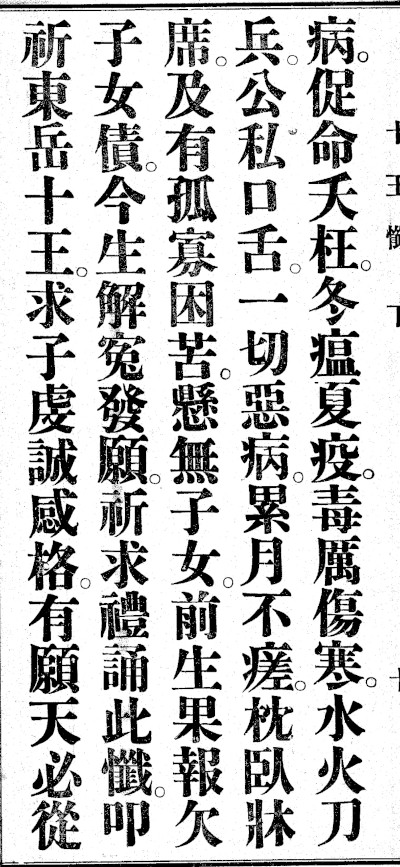 十王懺 下 十
病。促命夭枉。冬瘟夏疫。毒厲傷寒。水火刀
兵。公私口舌。一切惡病。累月不瘥。枕臥牀
席。及有孤寡困苦。懸無子女。前生果報欠
子女債。今生解寃發願。祈求禮誦此懺。叩
祈東岳十王。求子虔誠感格。有願天必從